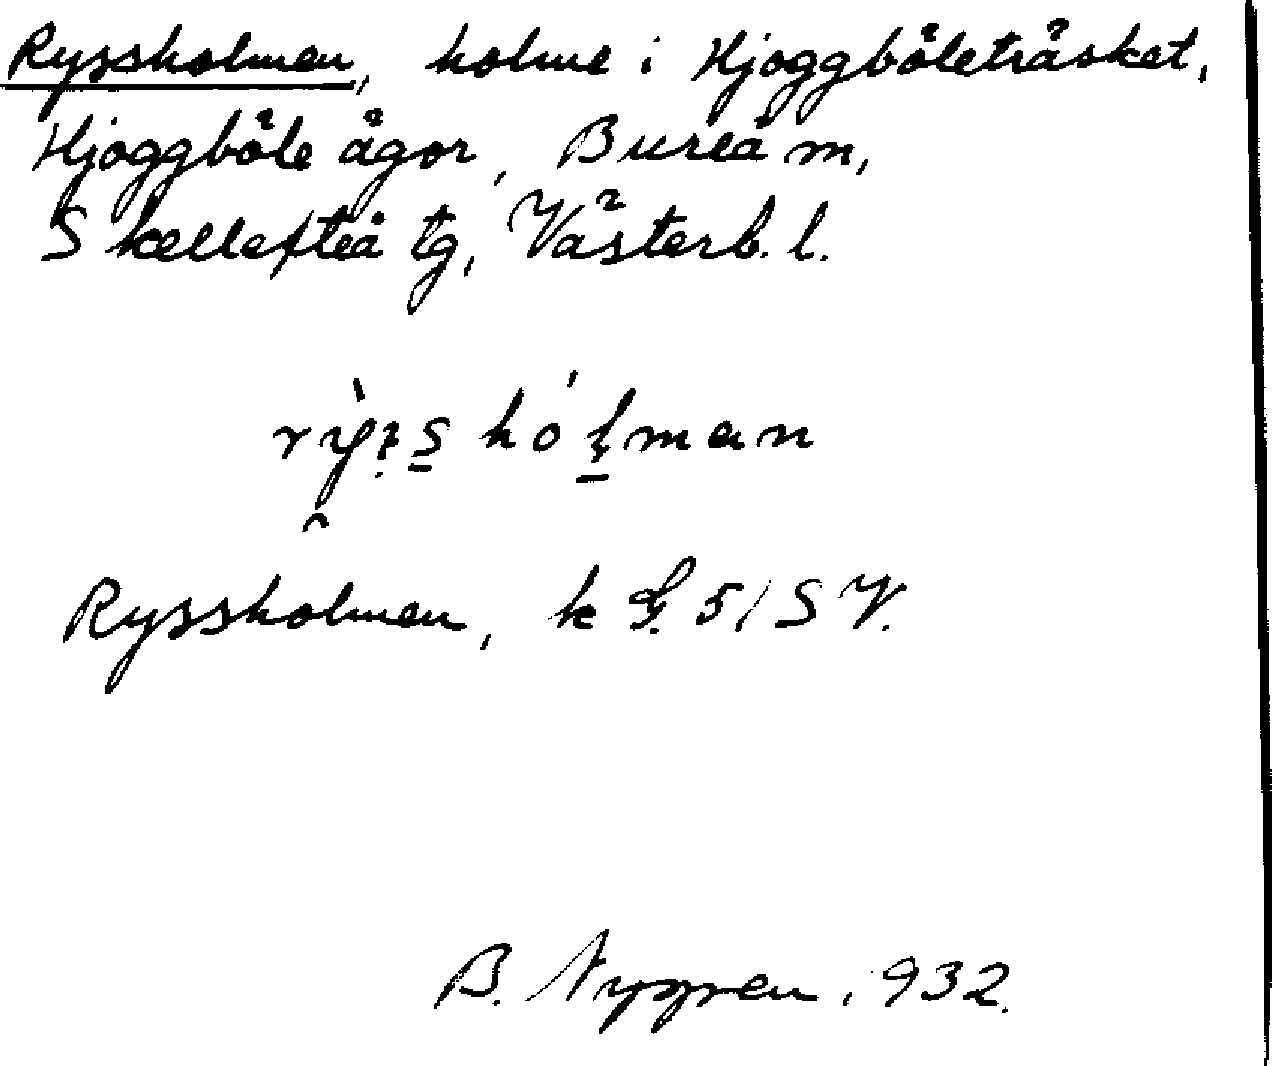 Ryssholmen, holme i Hjoggböleträsket,
Hjoggböle ägor, Bureå m,
Skellefteå tg, Västerb. l.
Ryssholmen, k 51 SV.
B. Nygren. 1932.